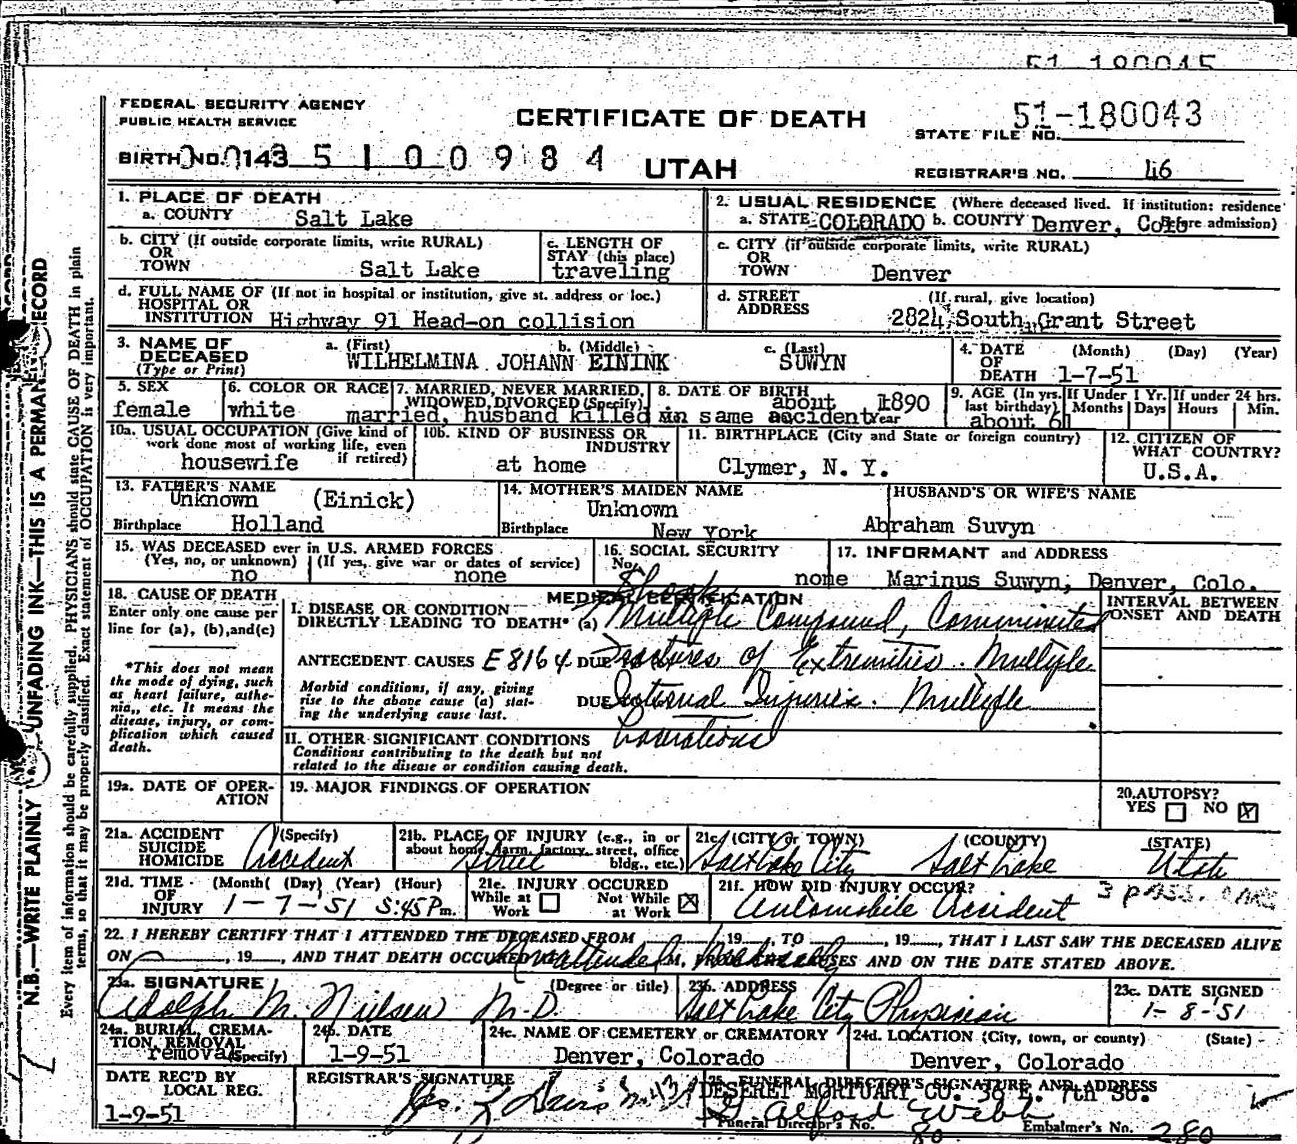 51-180045
FEDERAL SECURITY AGENCY
PUBLIC HEALTH SERVICE
CERTIFICATE OF DEATH
51-180043
STATE FILE NO.
BIRTH NO. 143 5 1 0 0 9 8 4
UTAH
REGISTRAR'S NO. 46
1. PLACE OF DEATH
a. COUNTY Salt Lake
2. USUAL RESIDENCE (Where deceased lived. If institution: residence before admission)
a. STATE COLORADO b. COUNTY Denver, Colo
b. CITY (If outside corporate limits, write RURAL)
OR
TOWN Salt Lake
c. LENGTH OF
STAY (this place)
traveling
c. CITY (if outside corporate limits, write RURAL)
OR
TOWN Denver
d. FULL NAME OF (If not in hospital or institution, give st. address or loc.)
HOSPITAL OR
INSTITUTION Highway 91 Head-on collision
d. STREET (If rural, give location)
ADDRESS 2824 South Grant Street
3. NAME OF DECEASED (Type or Print)
a. (First) b. (Middle) c. (Last)
WILHELMINA JOHANN EININK SUWYN
4. DATE OF DEATH (Month) (Day) (Year)
1-7-51
5. SEX
female
6. COLOR OR RACE
white
7. MARRIED, NEVER MARRIED, WIDOWED, DIVORCED (Specify)
married, husband killed in same accident
8. DATE OF BIRTH
about 1890
Year
9. AGE (In yrs. last birthday)
about 60
If Under 1 Yr. Months Days
If under 24 hrs. Hours Min.
10a. USUAL OCCUPATION (Give kind of work done most of working life, even if retired)
housewife
10b. KIND OF BUSINESS OR INDUSTRY
at home
11. BIRTHPLACE (City and State or foreign country)
Clymer, N. Y.
12. CITIZEN OF WHAT COUNTRY?
U.S.A.
13. FATHER'S NAME
Unknown (Einick)
Birthplace Holland
14. MOTHER'S MAIDEN NAME
Unknown
Birthplace New York
HUSBAND'S OR WIFE'S NAME
Abraham Suvyn
15. WAS DECEASED ever in U.S. ARMED FORCES
(Yes, no, or unknown) (If yes, give war or dates of service)
no none
16. SOCIAL SECURITY
No. none
17. INFORMANT and ADDRESS
Marinus Suwyn, Denver, Colo.
18. CAUSE OF DEATH
Enter only one cause per line for (a), (b), and (c)
*This does not mean the mode of dying, such as heart failure, asthenia, etc. It means the disease, injury, or complication which caused death.
MEDICAL CERTIFICATION
INTERVAL BETWEEN ONSET AND DEATH
I. DISEASE OR CONDITION
DIRECTLY LEADING TO DEATH* (a) Shock Multiple Compound, Comminuted
ANTECEDENT CAUSES E8164 DUE Fractures of Extremities. Multiple
Morbid conditions, if any, giving rise to the above cause (a) stating the underlying cause last.
DUE Internal Injuries. Multiple
Lacerations
II. OTHER SIGNIFICANT CONDITIONS
Conditions contributing to the death but not related to the disease or condition causing death.
19a. DATE OF OPERATION
19. MAJOR FINDINGS OF OPERATION
20. AUTOPSY?
YES NO X
21a. ACCIDENT SUICIDE HOMICIDE (Specify)
Accident
21b. PLACE OF INJURY (e.g., in or about home, farm, factory, street, office bldg., etc.)
Street
21c. (CITY or TOWN) (COUNTY) (STATE)
Salt Lake City Salt Lake Utah
21d. TIME OF INJURY (Month) (Day) (Year) (Hour)
1-7-51 5:45 Pm.
21e. INJURY OCCURED
While at Work Not While at Work X
21f. HOW DID INJURY OCCUR? 3 pass. cars
Automobile Accident
22. I HEREBY CERTIFY THAT I ATTENDED THE DECEASED FROM 19, TO , 19, THAT I LAST SAW THE DECEASED ALIVE
ON , 19, AND THAT DEATH OCCURED Unattended Medically M, FROM CAUSES AND ON THE DATE STATED ABOVE.
23a. SIGNATURE (Degree or title)
Adolph M. Nielsen M.D.
23b. ADDRESS
Salt Lake City Physician
23c. DATE SIGNED
1-8-51
24a. BURIAL, CREMATION, REMOVAL (Specify)
removal
24b. DATE
1-9-51
24c. NAME OF CEMETERY or CREMATORY
Denver, Colorado
24d. LOCATION (City, town, or county) (State)
Denver, Colorado
DATE REC'D BY LOCAL REG.
1-9-51
REGISTRAR'S SIGNATURE
25. FUNERAL DIRECTOR'S SIGNATURE AND ADDRESS
DESERET MORTUARY CO. 36 E. 7th So.
D. Alford Webb
Funeral Director's No. 80
Embalmer's No. 280
N.B.—WRITE PLAINLY UNFADING INK—THIS IS A PERMANENT RECORD
Every item of information should be carefully supplied. PHYSICIANS should state CAUSE OF DEATH in plain
terms, so that it may be properly classified. Exact statement of OCCUPATION is very important.